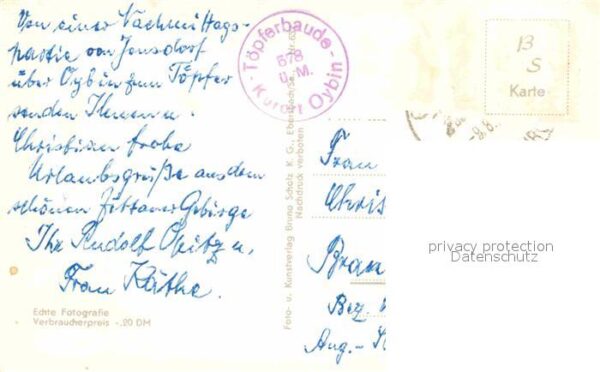 Von einer Nachmittags-
partie von Jonsdorf
über Oybin zum Töpfer
senden Ihnen u.
Christian frohe
Urlaubsgrüße aus dem
schönen Zittauer Gebirge
Ihr Rudolf Opitz u.
Frau Käthe.
Echte Fotografie
Verbraucherpreis -.20 DM
Töpferbaude
578
ü. M.
Kurort Oybin
Foto- u. Kunstverlag Bruno Scholz K. G., Ebersbach/Sa.
Nachdruck verboten
B
S
Karte
Frau
Chris
Bran
Bez.
Aug.-
privacy protection
Datenschutz